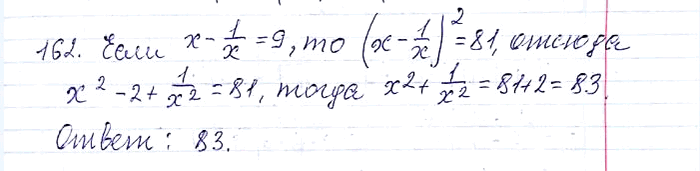 162. Если x - 1/x = 9, то (x - 1/x)² = 81, отсюда
x² - 2 + 1/x² = 81, тогда x² + 1/x² = 81+2 = 83.
Ответ: 83.